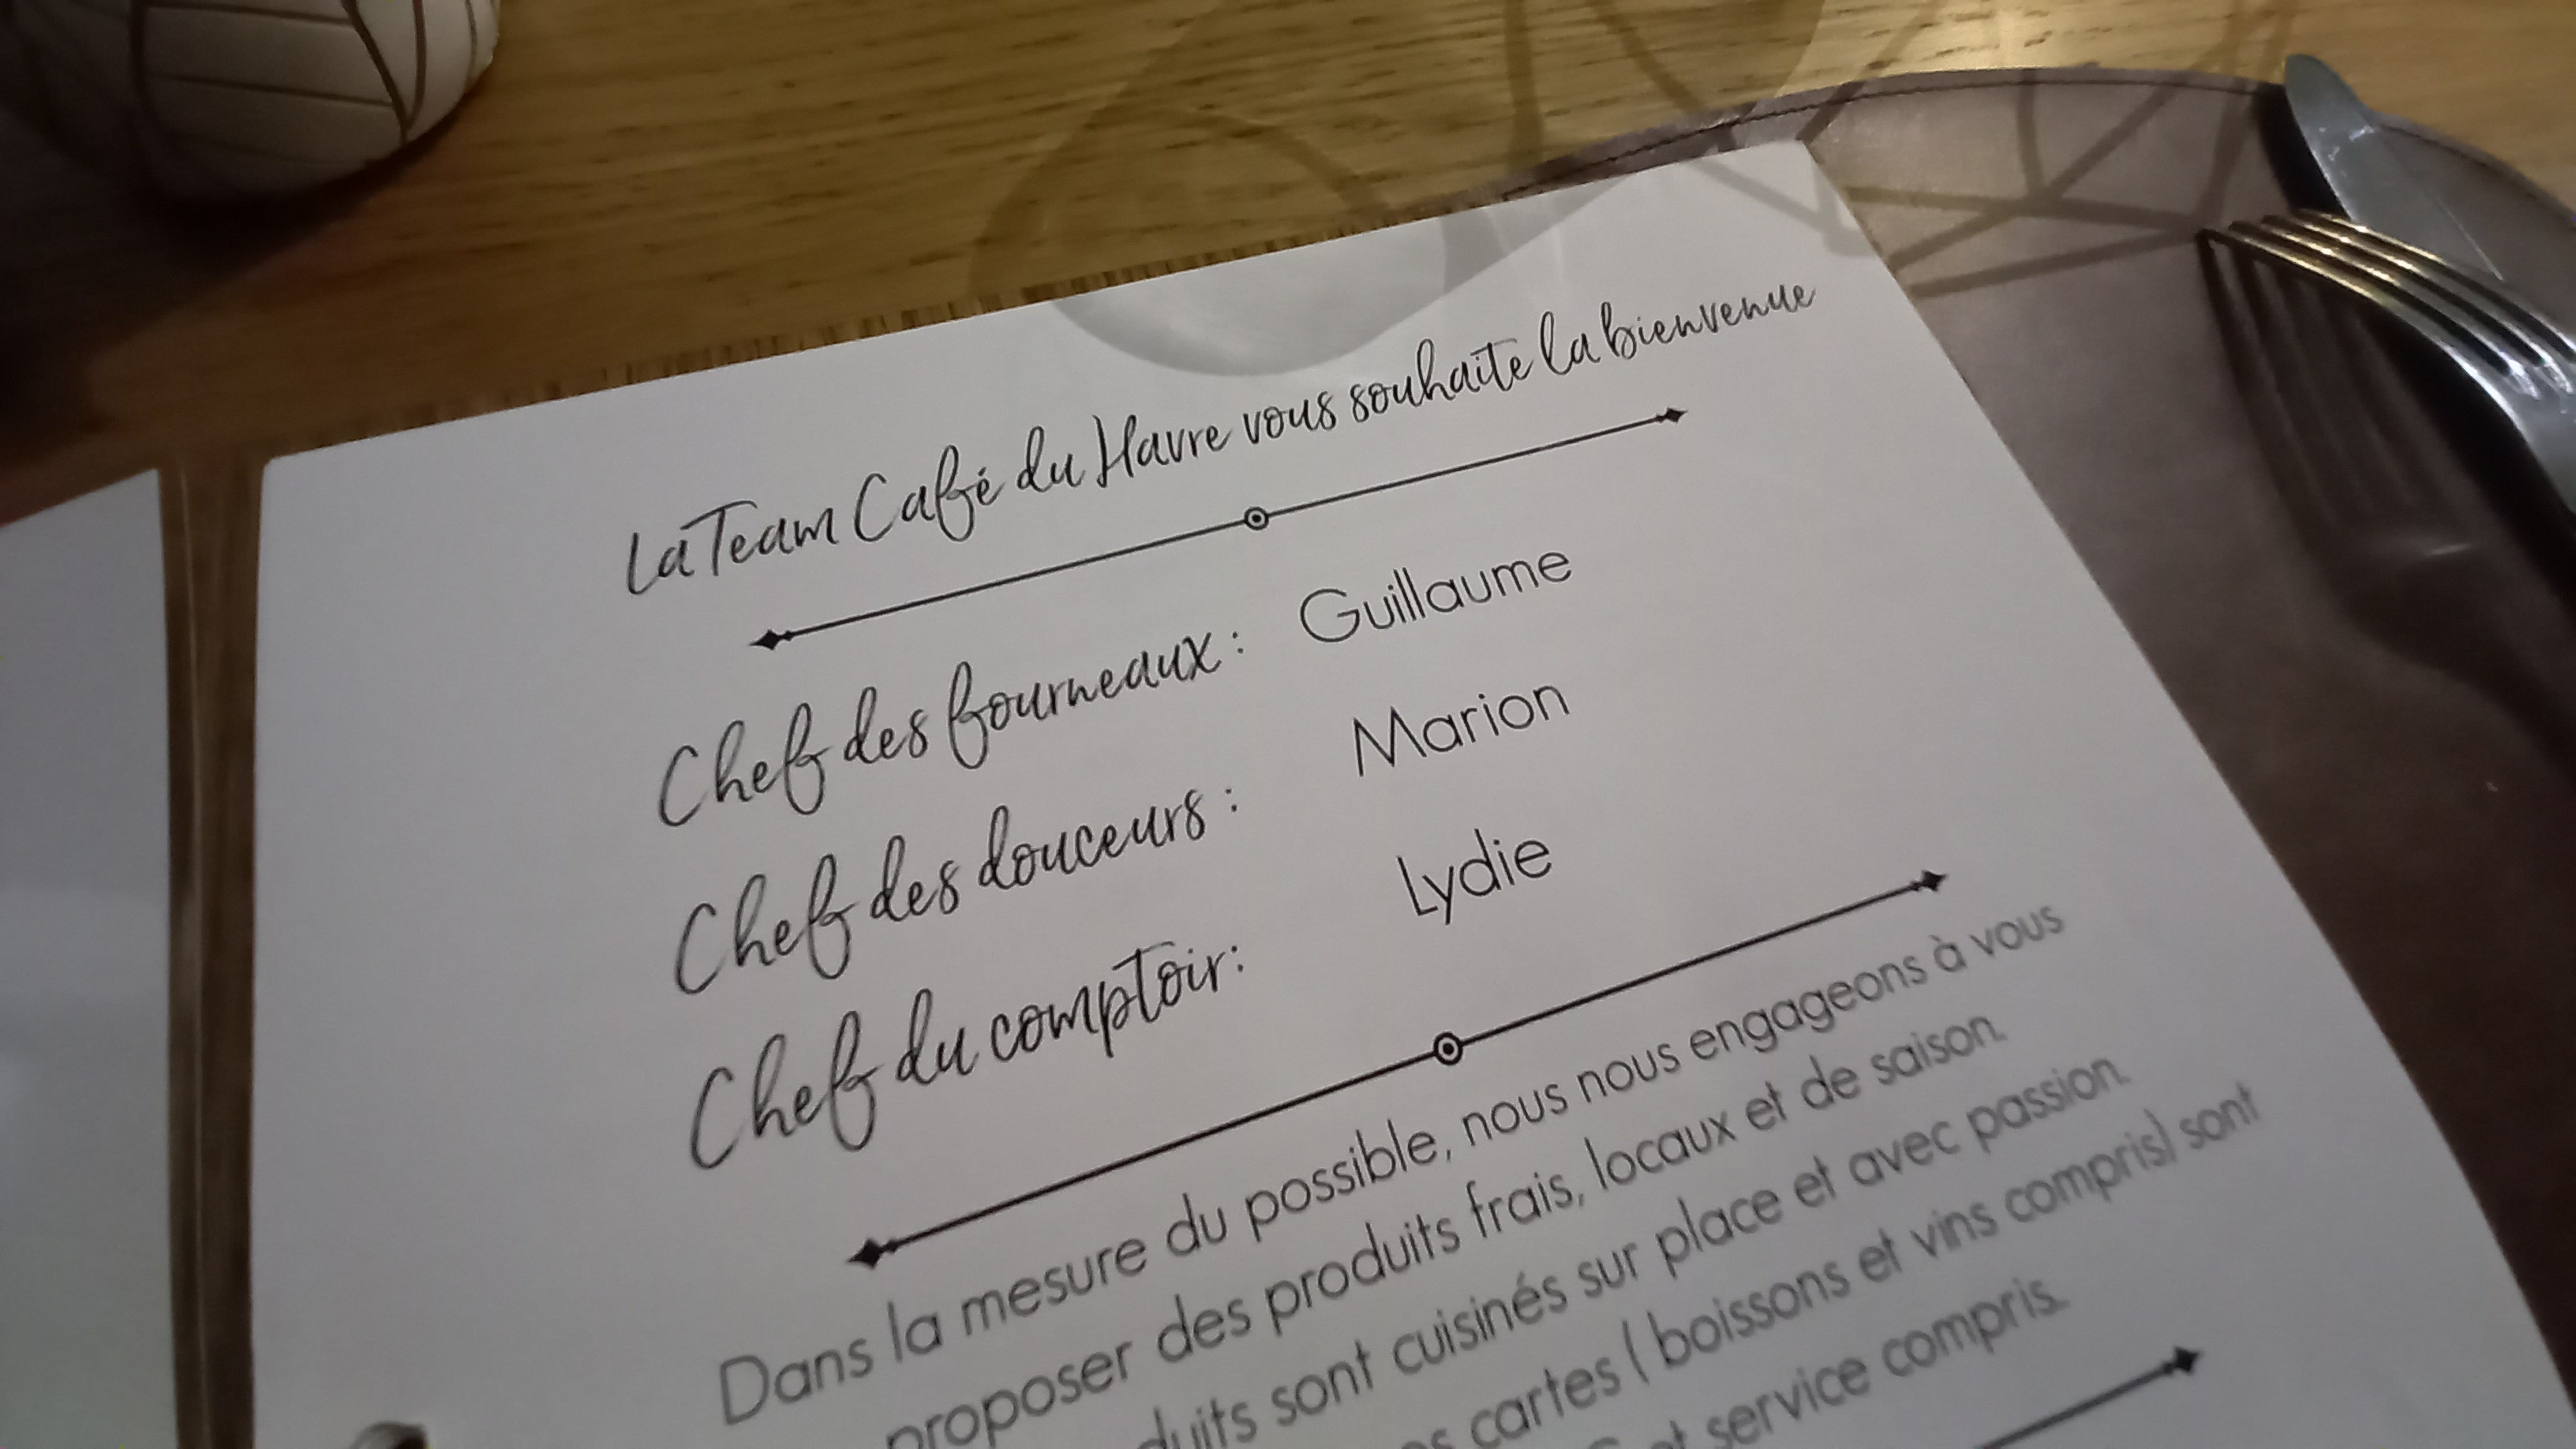 La Team Café du Havre vous souhaite la bienvenue
Chef des fourneaux : Guillaume
Chef des douceurs : Marion
Chef du comptoir: Lydie
Dans la mesure du possible, nous nous engageons à vous
proposer des produits frais, locaux et de saison.
sont cuisinés sur place et avec passion.
cartes ( boissons et vins compris) sont
service compris.